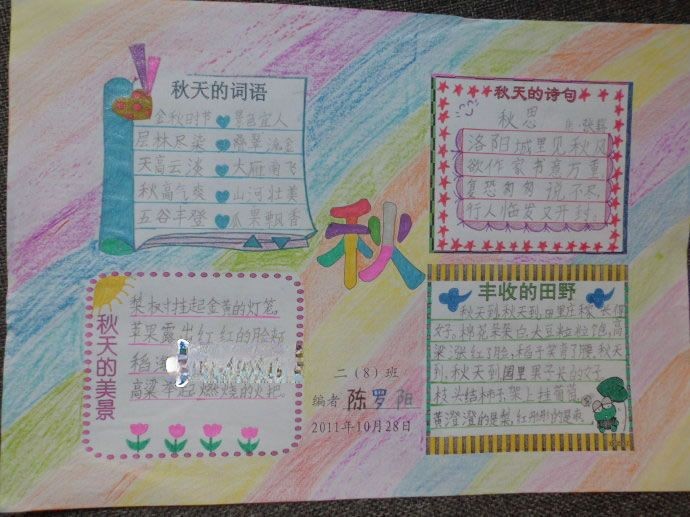 秋天的词语
金秋时节 景色宜人
层林尽染 叠翠流金
天高云淡 大雁南飞
秋高气爽 山河壮美
五谷丰登 瓜果飘香
秋天的诗句
秋思
张籍
洛阳城里见秋风
欲作家书意万重
复恐匆匆说不尽
行人临发又开封。
秋
秋天的美景
梨树挂起金黄的灯笼,
苹果露出红红的脸颊
稻
高粱举起燃烧的火把
二(8)班
编者 陈罗阳
2011年10月28日
丰收的田野
秋天到,秋天到,田里庄稼长得
好。棉花朵朵白,大豆粒粒饱,高
粱涨红了脸,稻子笑弯了腰。秋天
到,秋天到,园里果子长得好
枝头结柿子,架上挂葡萄
黄澄澄的是梨,红彤彤的是枣